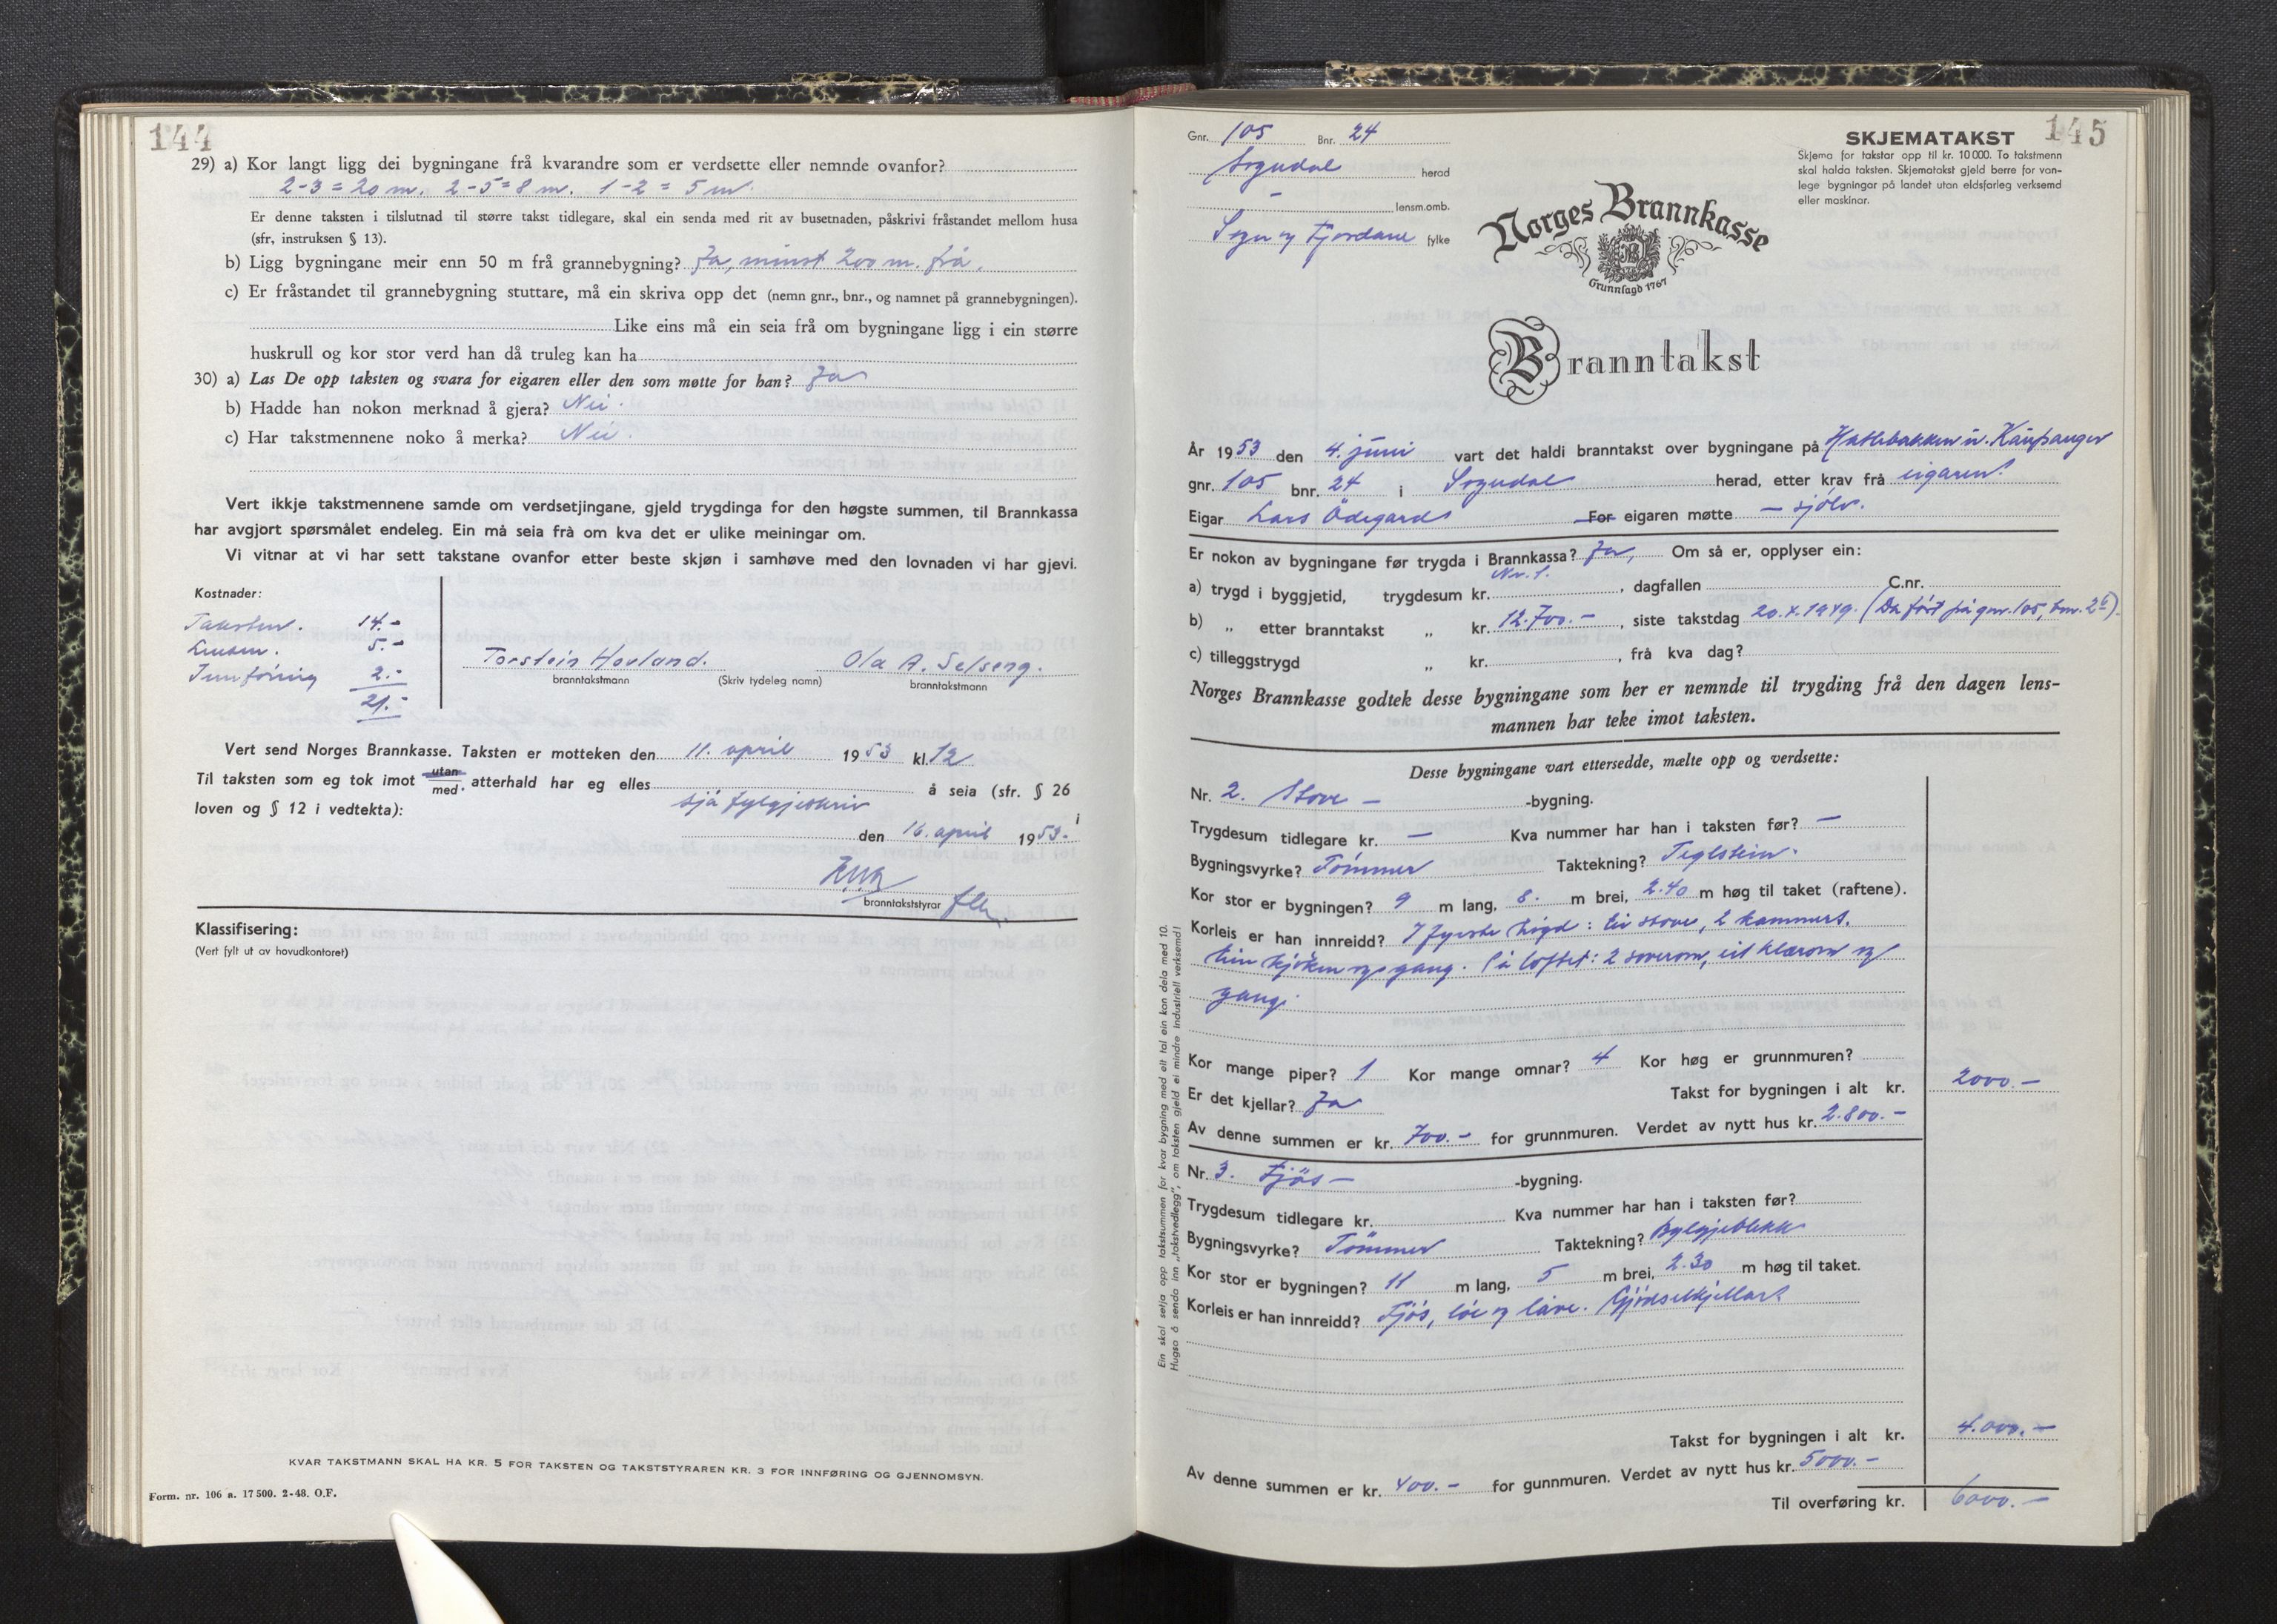 144
29) a) Kor langt ligg dei bygningane frå kvarandre som er verdsette eller nemnde ovanfor?
2-3 = 20 m. 2-5 = 8 m. 1-2 = 5 m.
Er denne taksten i tilslutnad til større takst tidlegare, skal ein senda med rit av busetnaden, påskrivi fråstandet mellom husa
(sfr, instruksen § 13).
b) Ligg bygningane meir enn 50 m frå grannebygning? Ja, minst 200 m. frå.
c) Er fråstandet til grannebygning stuttare, må ein skriva opp det (nemn gnr., bnr., og namnet på grannebygningen).
Like eins må ein seia frå om bygningane ligg i ein større
huskrull og kor stor verd han då truleg kan ha
30) a) Las De opp taksten og svara for eigaren eller den som møtte for han? Ja
b) Hadde han nokon merknad å gjera? Nei.
c) Har takstmennene noko å merka? Nei.
Vert ikkje takstmennene samde om verdsetjingane, gjeld trygdinga for den høgste summen, til Brannkassa
har avgjort spørsmålet endeleg. Ein må seia frå om kva det er ulike meiningar om.
Vi vitnar at vi har sett takstane ovanfor etter beste skjøn i samhøve med den lovnaden vi har gjevi.
Kostnader:
Taksten. 14.-
5.-
Innføring 2.-
21.-
Torstein Hovland. Ola A. Selseng.
branntakstmann (Skriv tydeleg namn) branntakstmann
Vert send Norges Brannkasse. Taksten er motteken den 11. april 1953 kl. 12
Til taksten som eg tok imot utan med. atterhald har eg elles å seia (sfr. § 26
loven og § 12 i vedtekta): sjå fylgjeskriv
den 16. april 1953.
branntakststyrar
Klassifisering:
(Vert fylt ut av hovudkontoret)
KVAR TAKSTMANN SKAL HA KR. 5 FOR TAKSTEN OG TAKSTSTYRAREN KR. 3 FOR INNFØRING OG GJENNOMSYN.
Form. nr. 106 a. 17 500. 2-48. O.F.
145
Gnr. 105 Bnr. 24
Sogndal herad
- lensm.omb.
Sogn og Fjordane fylke
SKJEMATAKST
Skjema for takstar opp til kr. 10 000. To takstmenn
skal halda taksten. Skjematakst gjeld berre for van-
lege bygningar på landet utan eldsfarleg verksemd
eller maskinar.
Norges Brannkasse
Grunnlagd 1767
Branntakst
År 1953 den 4. juni vart det haldi branntakst over bygningane på Hatlebakken i Kaupanger
gnr. 105 bnr. 24 i Sogndal herad, etter krav frå eigaren.
Eigar Lars Ødegard For eigaren møtte - sjølv.
Er nokon av bygningane før trygda i Brannkassa? Ja, Om så er, opplyser ein:
Nr. 1.
a) trygd i byggjetid, trygdesum kr. , dagfallen C.nr.
b) „ etter branntakst „ kr. 12.700.- , siste takstdag 20.x.1949. (Da ført på gnr. 105, bnr. 26).
c) tilleggstrygd „ kr. , frå kva dag?
Norges Brannkasse godtek desse bygningane som her er nemnde til trygding frå den dagen lens-
mannen har teke imot taksten.
Desse bygningane vart ettersedde, mælte opp og verdsette:
Nr. 2. Stove - -bygning.
Trygdesum tidlegare kr. - Kva nummer har han i taksten før? -
Bygningsvyrke? Tömmer Taktekning? Teglstein.
Kor stor er bygningen? 9 m lang, 8. m brei, 2.40 m høg til taket (raftene).
Korleis er han innreidd? I fyrste høgd: ei stove, 2 kammers,
kjøken og gang. På loftet: 2 soverom, eit klærom og
gang.
Kor mange piper? 1 Kor mange omnar? 4 Kor høg er grunnmuren?
Er det kjellar? Ja Takst for bygningen i alt kr. 2000.-
Av denne summen er kr. 700.- for grunnmuren. Verdet av nytt hus kr. 2.800.-
Nr. 3. Fjös - -bygning.
Trygdesum tidlegare kr. Kva nummer har han i taksten før?
Bygningsvyrke? Tömmer Taktekning? Bylgjeblekk
Kor stor er bygningen? 11 m lang, 5 m brei, 2.30 m høg til taket.
Korleis er han innreidd? Fjös, löe og låve. Gjødselkjellar.
Takst for bygningen i alt kr. 4.000.-
Av denne summen er kr. 400.- for gunnmuren. Verdet av nytt hus kr. 5000.-
Til overføring kr. 6000.-
Ein skal setja opp takstsummen for kvar bygning med eit tal ein kan dela med 10.
Hugso å senda inn „takstvedlegg", om taksten gjeld ei mindre industriell verksemd!